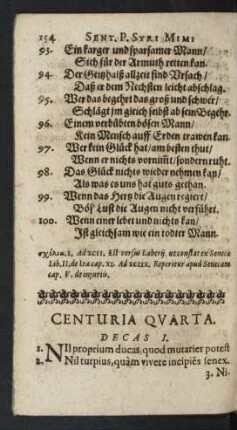 154 SENT. P. SYRI MIMI
93. Ein karger und sparsamer Mann/
Sich für der Armuth retten kan.
94. Der Geitzhalß allzeit find Ursach/
Daß er dem Nechsten leicht abschlag.
95. Wer das begehrt das groß und schwer/
Schlägt jm gleich selbst ab sein Begehr.
96. Einem verbübten bösen Mann/
Kein Mensch auff Erden trawen kan.
97. Wer kein Glück hat/ am besten thut/
Wenn er nichts vornim̃t/ sondern ruht.
98. Das Glück nichts wieder nehmen kan/
Als was es uns hat guts gethan.
99. Wenn das Hertz die Augen regiert/
Böß Lust die Augen nicht verführt.
100. Wenn einer lebet und nichts kan/
Ist gleichsam wie ein todter Mann.
σχόλια. 1. Ad XCII. Est versus Laberij, ut constat ex Seneca
Lib. II. de Ira cap. XI. Ad XCIIX. Reperitur apud Senecam
cap. V. de
CENTURIA QVARTA.
DECAS I.
1. NIl proprium ducas, quod mutarier potest
2. Nil turpius, quàm vivere incipiẽs senex.
3. Ni-